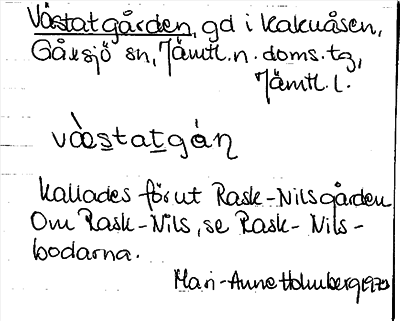 Västatgården, gd i Kakuåsen,
Gåxsjö sn, Jämtl. n. doms. tg,
Jämtl. l.
væ̀statgán
kallades förut Rask-Nilsgården
Om Rask-Nils, se Rask-Nils-
bodarna.
Mari-Anne Holmberg 1973